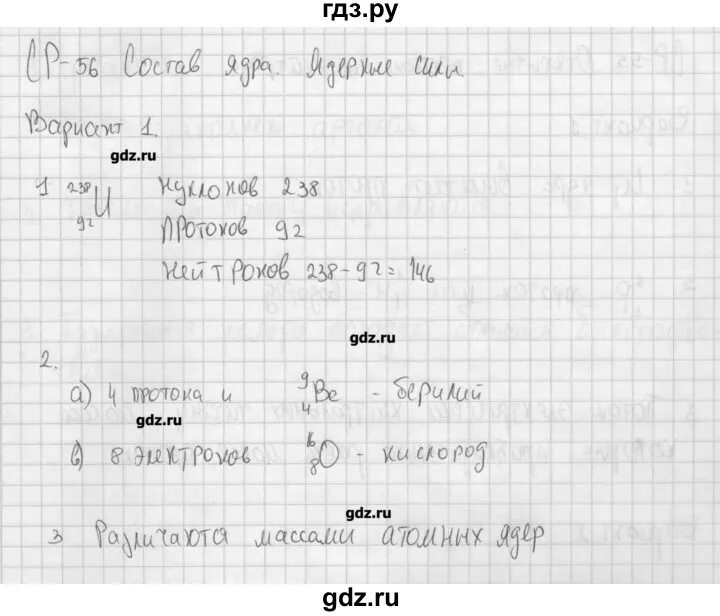 гдз.ру
СР-56 Состав ядра. Ядерные силы
Вариант 1.
gdz.ru
1 ²³⁸₉₂U Нуклонов 238
Протонов 92
Нейтронов 238-92=146
gdz.ru
2.
а) 4 протона и ⁹₄Be - берилий
gdz.ru
в) 8 электронов ¹⁶₈O - кислород
gdz.ru
3 Различаются массами атомных ядер
gdz.ru